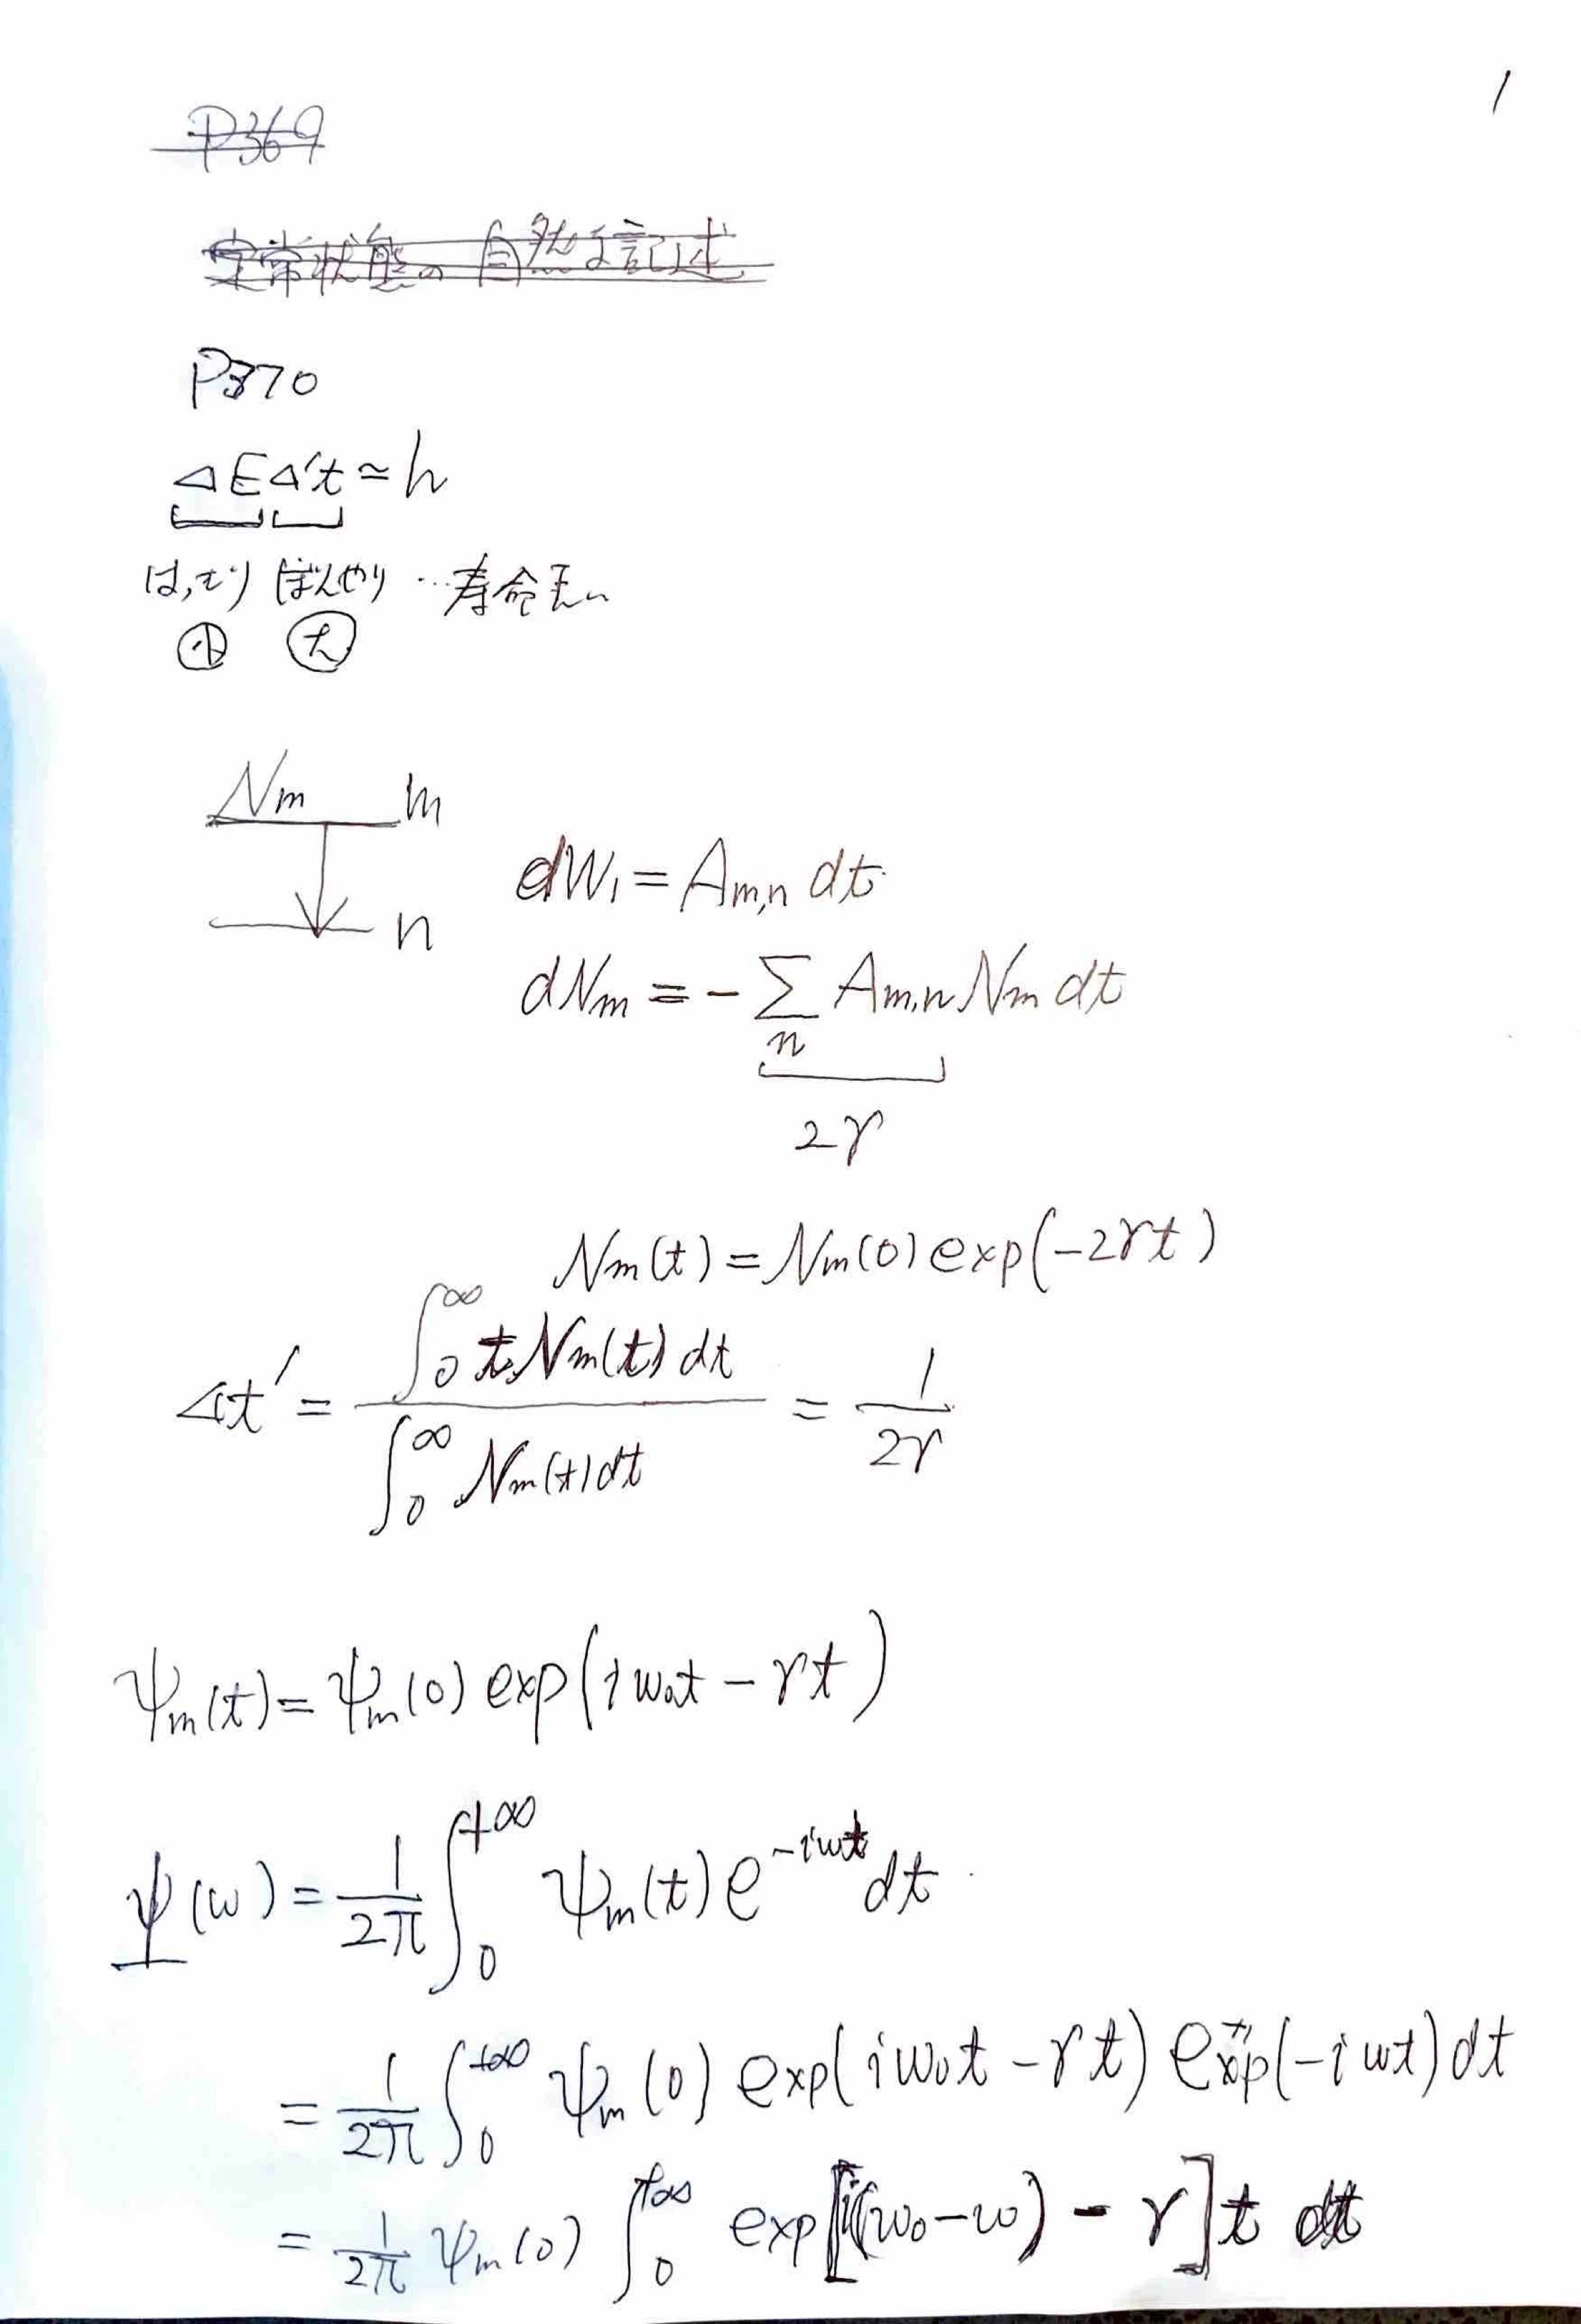 1
P369
定常状態の自然な記述
P370
ΔEΔ't≃h
はっきり ぼんやり …寿命長い
小 大
Nm m
n
dW₁ = Am,n dt
dNm = -∑ Am,n Nm dt
n
2γ
Nm(t) = Nm(0) exp(-2γt)
Δt' = ∫₀^∞ t Nm(t) dt / ∫₀^∞ Nm(t) dt = 1/2γ
ψm(t) = ψm(0) exp(iω₀t - γt)
ψ(ω) = 1/2π ∫₀^+∞ ψm(t) e^-iωt dt
= 1/2π ∫₀^+∞ ψm(0) exp(iω₀t - γt) exp(-iωt) dt
= 1/2π ψm(0) ∫₀^+∞ exp[i(ω₀-ω) - γ]t dt